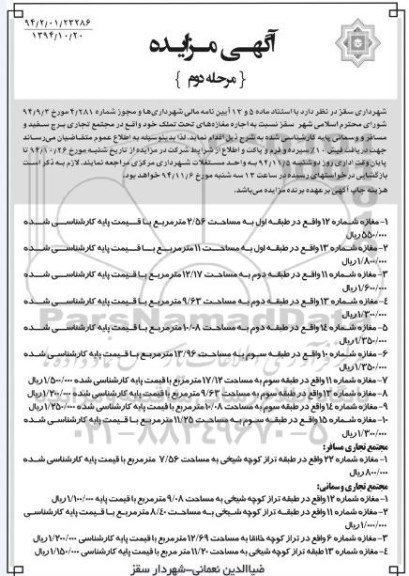 ۹۴/۲/۰۱/۲۳۲۸۶
۱۳۹۴/۱۰/۲۰
آگهی مزایده
{ مرحله دوم }
شهرداری سقز در نظر دارد با استناد ماده ۵ و ۱۳ آیین نامه مالی شهرداری‌ها و مجوز شماره ۴/۲۸۱ مورخ ۹۴/۹/۳
شورای محترم اسلامی شهر سقز نسبت به اجاره مغازه‌های تحت تملک خود واقع در مجتمع تجاری برج سفید و
مسافر و وسمانی پایه کارشناسی شده به شرح ذیل اقدام نماید. لذا بدینوسیله به اطلاع عموم متقاضیان می‌رساند
جهت دریافت فیش ۱۰٪ سپرده و فرم و پاکت و اطلاع از شرایط شرکت در مزایده از تاریخ شنبه مورخ ۹۴/۱۰/۲۶ تا
پایان وقت اداری روز دوشنبه ۹۴/۱۱/۵ به واحد مستغلات شهرداری مرکزی مراجعه نمایند. لازم به ذکر است
بازگشایی درخواستهای رسیده در ساعت ۱۳ سه شنبه مورخ ۹۴/۱۱/۶ خواهد بود.
هزینه چاپ آگهی بر عهده برنده مزایده می‌باشد.
۱- مغازه شماره ۱۲ واقع در طبقه اول به مساحت ۲/۵۶ مترمربع با قیمت پایه کارشناسی شده
۵۵۰/۰۰۰ ریال
۲- مغازه شماره ۱۳ واقع در طبقه اول به مساحت ۱۱ مترمربع با قیمت پایه کارشناسی شده
۱/۸۰۰/۰۰۰ ریال
۳- مغازه شماره ۱۱ واقع در طبقه دوم به مساحت ۱۲/۱۷ مترمربع با قیمت پایه کارشناسی شده
۱/۶۰۰/۰۰۰ ریال
۴- مغازه شماره ۱۳ واقع در طبقه دوم به مساحت ۹/۶۳ مترمربع با قیمت پایه کارشناسی شده
۱/۳۰۰/۰۰۰ ریال
۵- مغازه شماره ۱۴ واقع در طبقه دوم به مساحت ۱۰/۰۸ مترمربع با قیمت پایه کارشناسی شده
۱/۳۵۰/۰۰۰ ریال
۶- مغازه شماره ۱۰ واقع در طبقه سوم به مساحت ۱۳/۹۶ مترمربع با قیمت پایه کارشناسی شده
۱/۳۵۰/۰۰۰ ریال
۷- مغازه شماره ۱۱ واقع در طبقه سوم به مساحت ۱۷/۱۲ مترمربع با قیمت پایه کارشناسی شده ۱/۵۰۰/۰۰۰ ریال
۸- مغازه شماره ۱۳ واقع در طبقه سوم به مساحت ۹/۶۳ مترمربع با قیمت پایه کارشناسی شده ۱/۲۰۰/۰۰۰ ریال
۹- مغازه شماره ۱۴ واقع در طبقه سوم به مساحت ۱۰/۰۸ مترمربع با قیمت پایه کارشناسی شده ۱/۲۵۰/۰۰۰ ریال
۱۰- مغازه شماره ۱۵ واقع در طبقه سوم به مساحت ۱۱/۲۵ مترمربع با قیمت پایه کارشناسی شده
۱/۳۰۰/۰۰۰ ریال
مجتمع تجاری مسافر:
۱- مغازه شماره ۲۲ واقع در طبقه تراز کوچه شیخی به مساحت ۷/۵۶ مترمربع با قیمت پایه کارشناسی شده
۸۰۰/۰۰۰ ریال
مجتمع تجاری وسمانی:
۱- مغازه شماره ۱۲ واقع در طبقه تراز کوچه شیخی به مساحت ۹/۰۸ مترمربع با قیمت پایه ۱/۱۰۰/۰۰۰ ریال
۲- مغازه شماره ۱۱ واقع در طبقه تراز کوچه شیخی به مساحت ۸/۴۰ مترمربع با قیمت پایه کارشناسی
۱/۰۰۰/۰۰۰ ریال
۳- مغازه شماره ۶ واقع در تراز کوچه خانقا به مساحت ۱۲/۶۹ مترمربع با قیمت پایه کارشناسی ۱/۲۰۰/۰۰۰ ریال
۴- مغازه شماره ۱۳ طبقه تراز کوچه شیخی به مساحت ۱۱/۲۰ مترمربع با قیمت پایه کارشناسی ۱/۱۵۰/۰۰۰ ریال
ضیاالدین نعمانی-شهردار سقز
ParsNamadData
۰۲۱-۸۸۳۴۹۶۷۰-۵